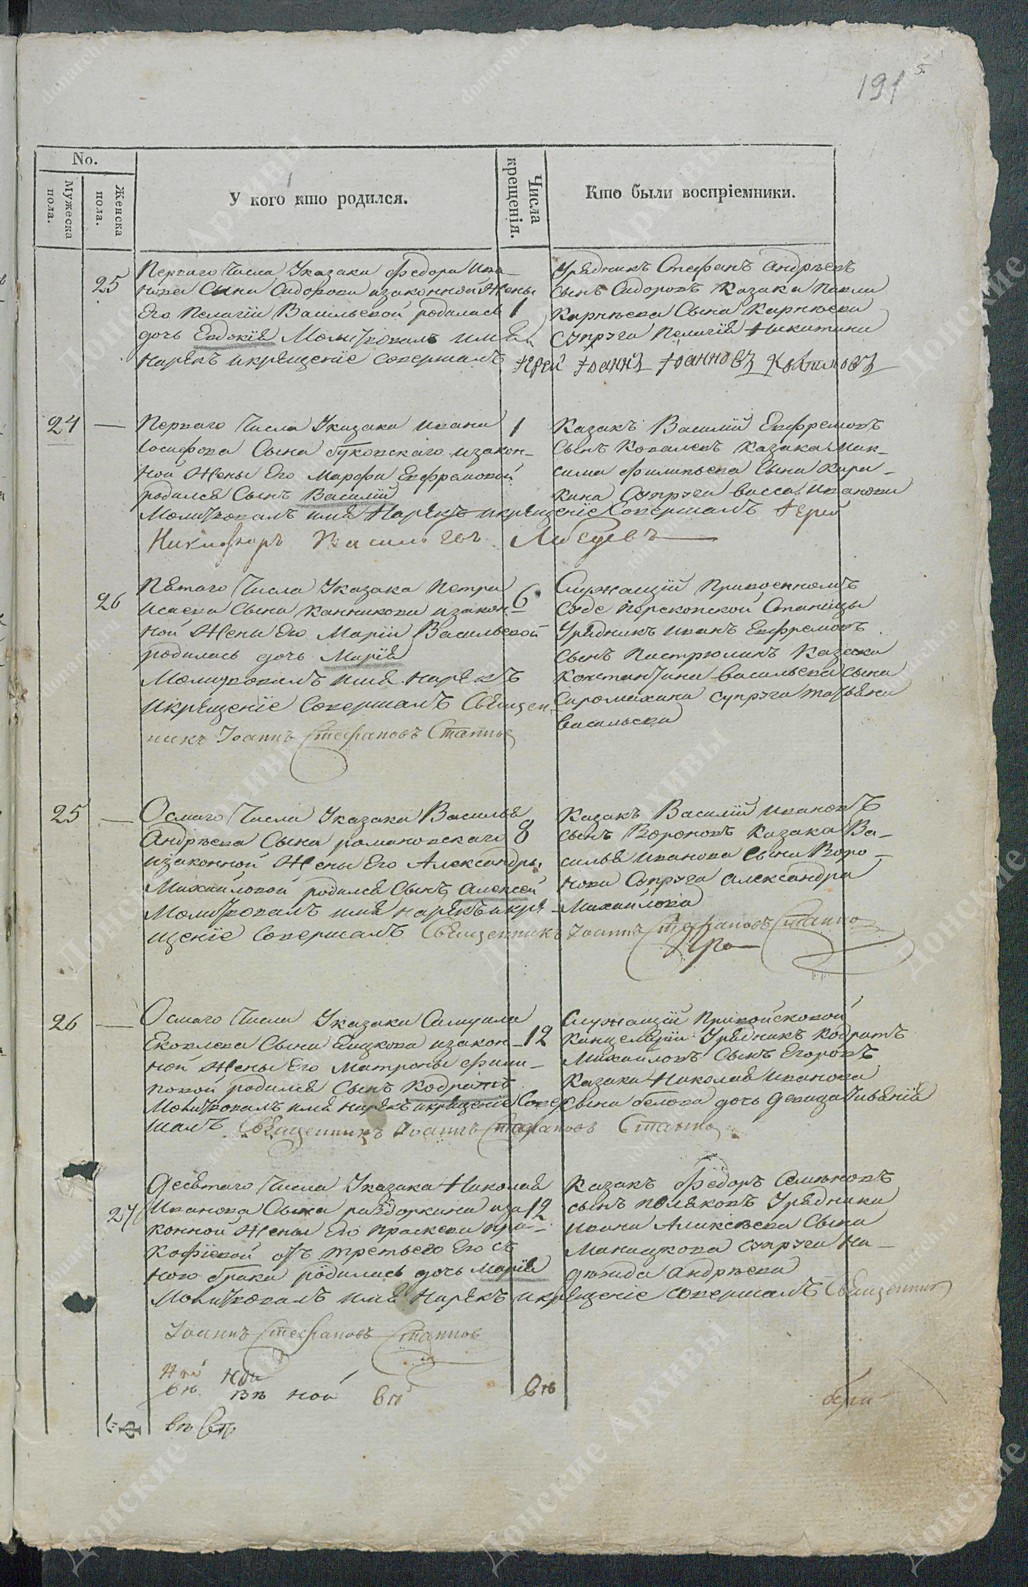 191
No.
Мужеска пола.
Женска пола.
У кого кто родился.
Числа крещенія.
Кто были воспріемники.
25
Перваго Числа Указака Федора Ива-
нова Сына Сидорова изаконной Жены
Его Пелагіи Васильевой родилась
дочь Евдокія Молитвовалъ имя
Нарекъ икрещеніе Совершалъ Іерей Іоаннъ Іоанновъ
1
Урядникъ Стефанъ Андреевъ
Сынъ Сидоровъ Казака Павла
Карнеева Сына Карнеева
Супруга Пелагія Никитина
24 —
Перваго Числа Указака Ивана
Іосифова Сына Буковскаго изакон-
ной Жены Его Марфы Евфремовой
родился Сынъ Василій
Молитвовалъ имя Нарекъ икрещеніе Совершалъ Іерей
Никифоръ Васильевъ Лебедевъ
1
Казакъ Василій Евфремовъ
Сынъ Ковалевъ Казака Мак-
сима Филипьева Сына Кара-
кина Супруга Васса Иванова
26
Пятаго Числа Указака Петра
Исаева Сына Канникова изакон-
ной Жены Его Маріи Васильевой
родилась дочь Марія
Молитвовалъ имя Нарекъ
икрещеніе Совершалъ Священ-
никъ Іоаннъ Стефановъ
6
Служащій Привоенномъ
Суде Пирсковской Станицы
Урядникъ Иванъ Евфремовъ
Сынъ Пастрюлинъ Казака
Константина Васильева Сына
Сиромахина Супруга Татьяна
Васильева
25 —
Осмаго Числа Указака Василья
Андреева Сына Романовскаго
изаконной Жены Его Александры
Михайловой родился Сынъ Алексей
Молитвовалъ имя нарекъ икре-
щеніе Совершалъ Священникъ Іоаннъ Стефановъ
8
Казакъ Василій Ивановъ
Сынъ Вороновъ Казака Ва-
силья Иванова Сына Воро-
нова Супруга Александра
Михайлова
26 —
Осмаго Числа Указака Самуила
Яковлева Сына Яицкова изакон-
ной Жены Его Матроны Фили-
повой родился Сынъ Кодратъ
Молитвовалъ имя нарекъ икрещеніе Совер-
шалъ Священникъ Іоаннъ Стефановъ
12
Служащій Привойсковой
Канцеляріи Урядникъ Кодратъ
Михайловъ Сынъ Егоровъ
Казака Николая Иванова
Сына Белова дочь девица
27
Десятаго Числа Указака Николая
Иванова Сына Раздоркина иза-
конной Жены Его Праскевы Про-
кофіевой отъ третьего Его съ
ного брака родилась дочь Марія
Молитвовалъ имя Нарекъ икрещеніе Совершалъ Священник
Іоаннъ Стефановъ
12
Казакъ Федоръ Семеновъ
Сынъ Поляковъ Урядника
Ивана Алексеева Сына
Манацкова Супруга На-
дежда Андреева
ной